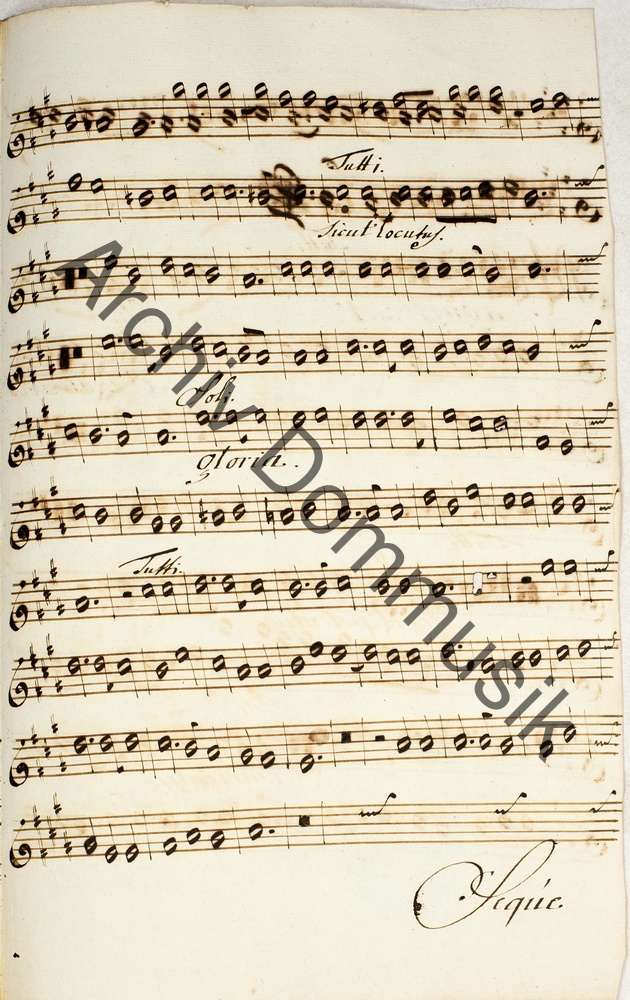 Tutti.
Sicut locutus.
Soli.
gloria.
Tutti.
Seqúe.
Archiv Dommusik